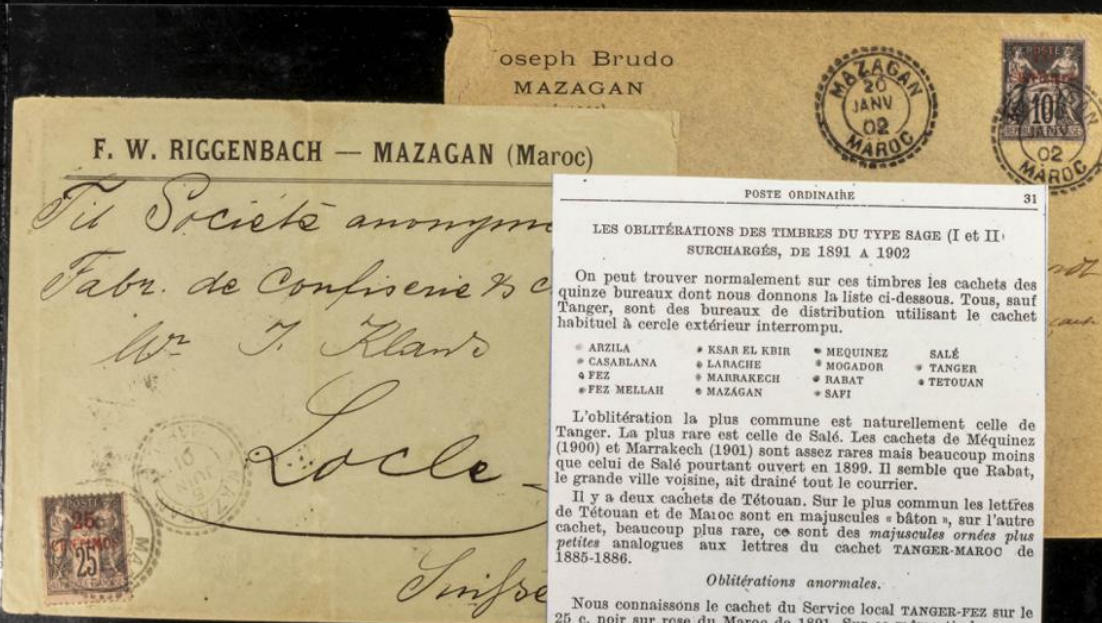 oseph Brudo
MAZAGAN
MAZAGAN
20
JANV
02
MAROC
POSTE
10
02
MAROC
F. W. RIGGENBACH — MAZAGAN (Maroc)
Til Societé anonyme
Fabr. de Confiserie & c
Mr J.
Locle
Suisse
JUIN
25
25
POSTE ORDINAIRE 31
LES OBLITÉRATIONS DES TIMBRES DU TYPE SAGE (I et II)
SURCHARGÉS, DE 1891 A 1902
On peut trouver normalement sur ces timbres les cachets des
quinze bureaux dont nous donnons la liste ci-dessous. Tous, sauf
Tanger, sont des bureaux de distribution utilisant le cachet
habituel à cercle extérieur interrompu.
ARZILA KSAR EL KBIR MEQUINEZ SALÉ
CASABLANA LARACHE MOGADOR TANGER
FEZ MARRAKECH RABAT TETOUAN
FEZ MELLAH MAZAGAN SAFI
L'oblitération la plus commune est naturellement celle de
Tanger. La plus rare est celle de Salé. Les cachets de Méquinez
(1900) et Marrakech (1901) sont assez rares mais beaucoup moins
que celui de Salé pourtant ouvert en 1899. Il semble que Rabat,
le grande ville voisine, ait drainé tout le courrier.
Il y a deux cachets de Tétouan. Sur le plus commun les lettres
de Tétouan et de Maroc sont en majuscules « bâton », sur l'autre
cachet, beaucoup plus rare, ce sont des majuscules ornées plus
petites analogues aux lettres du cachet TANGER-MAROC de
1885-1886.
Oblitérations anormales.
Nous connaissons le cachet du Service local TANGER-FEZ sur le
25 c. noir sur rose du Maroc de 1891.